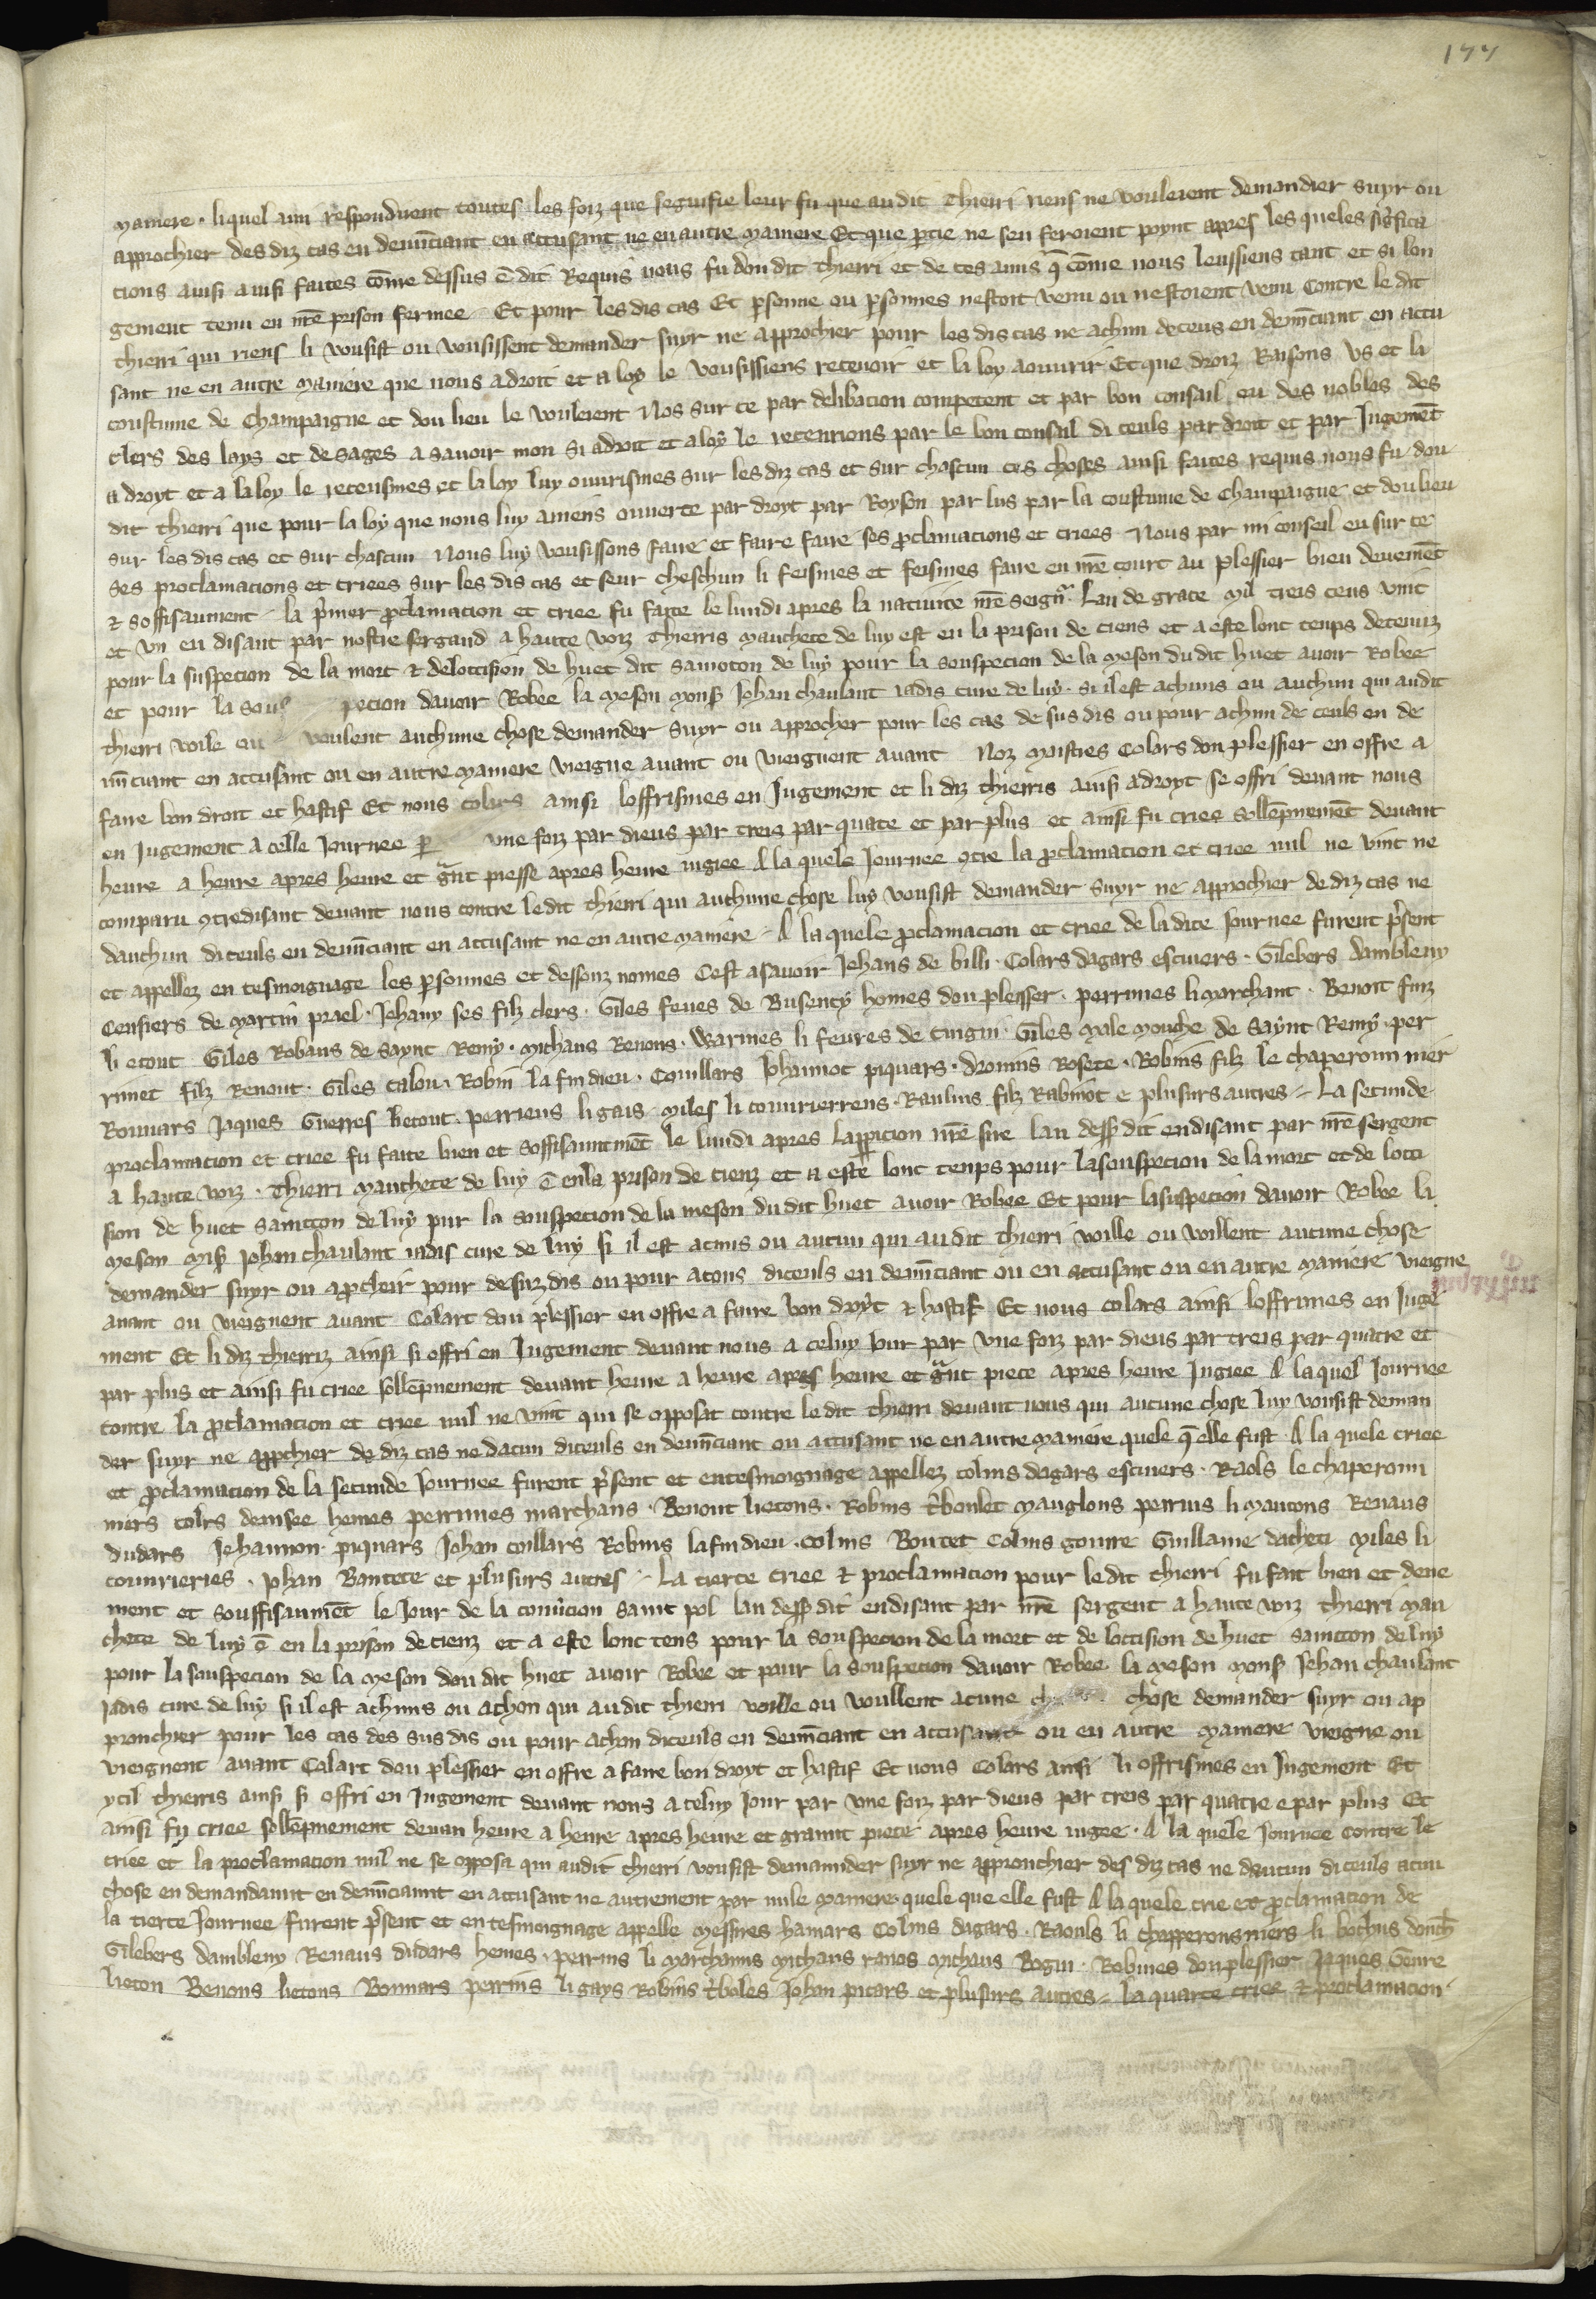 177
maniere · liquel ami respondirent toutes les foiz que segnifie leur fu que au dit Thierri riens ne vouleient demander suyr ou
approchier des diz cas en denūciant en accusant ne en autre maniere Et que ꝑtie ne sen feroient poynt apres les queles sig̃fica
cions ainsi ainsi faites cōme dessus ē dit Requis nous fu dou dit thierri et de ces amis q̄ cōme nous leussiens tant et si lon
gement tenu en nr̄e prison fermee · Et pour les dis cas Et ꝑsonne ou ꝑsonnes nestoit venu ou nestoient venu contre le dit
thierri qui riens li vousist ou vousissent demander suyr ne approchier pour les dis cas ne achun deceus en denūciant en accu
sant ne en autre maniere que nous a droit et a loy le vousissiens recevoir et la loy aouvrir Et que droiz Raisons vs et la
coustume de Champaigne et dou lieu le vouleient Nos sur ce par delibacion competent et par bon consail eu des nobles des
clers des loys et de sages a savoir mon si a droit et a loy le recevrions par le bon consail di ceuls par droit et par Jugemēt
a droyt et a la loy le receusmes et la loy luy ouvrismes sur les diz cas et sur chascun ces choses ainsi faites requis nous fu dou
dit thierri que pour la loy que nous luy aviens ouverte par droyt par Royson par lus par la coustume de Champaigne et dou lieu
sur les dis cas et sur chascun Nous luy vousissons faire et faire faire ses ꝓclamacions et criees Nous par mi conseil eu sur ce
Ses proclamacions et criees sur les dis cas et seur cheschun li feismes et feismes faire en nr̄e court au plessier bien deuemēt
⁊ soffisanment la p̄mier ꝓclamacion et criee fu faite le lundi apres la nativite nr̄e seign̄r · Lan de grace mil treis cens vint
et vn en disant par nostre sergand a haute voiz Thierris manchete de luy est en la prison de ciens et a este lont temps detenuz
pour la suspecion de la mort ⁊ de loccision de huet dit samoton de luy pour la souspecion de la meson du dit huet avoir Robee
et pour la sous pecion davoir Robee la meson monsꝭ Johan chaulant iadis cure de luy · si il est achuns ou auchun qui au dit
thierri voile ou voulent auchune chose demander suyr ou approcher pour les cas de sus dis ou pour achun de ceuls en de
nūciant en accusant ou en autre maniere vieigne avant ou vieignent avant Noz maistres Colars dou plessier en offre a
faire bon droit et hastif Et nous colars ainsi loffrismes en Jugement et li diz thierris ainsi a droyt se offri devant nous
en Jugement a celle Journee ꝑ vne foiz par dieus par treis par quatre et par plus et ainsi fu criee sollēpnemēt devant
heure a heure apres heure et g̃nt piesse apres heure iugiee A la quele Journee ꝯtre la ꝓclamacion et criee nul ne vint ne
comparu ꝯtredisant devant nous contre le dit thierri qui auchune chose luy vousist demander suyr ne approchier de diz cas ne
dauchun di ceuls en denūciant en accusant ne en autre maniere · A la quele ꝓclamacion et criee de la dite Journee furent p̄sent
et appellez en tesmoignage les ꝑsonnes et dessouz nomes Cest asavoir Jehans de billi · Colars dagars escuiers · Gilebers dambleny
Censiers de martin prael · Jehany ses filz clers · Giles feves de Busency homes dou plesser · perrines li marchant · Benoit filz
li etout Giles Robans de saynt Remy · michaus Renons · Warines li fevres de cuigni · Giles male mouche de saynt Remy · per
rinet filz Renout · Giles calou · Robin la fin dieu · Couillars Johannot piquars · drouins Rosete · Robins filz le chaperonn nier
Ronnars Jaques Guerres lietout · perriens li gais · miles li couvrierrens · Raulins filz Rabinot e plusurs autres · La secunde
proclamacion et criee fu faite bien et soffisanmēt le lundi apres lapꝑicion nr̄e sire lan dessꝰ dit en disant par nr̄e sergent
a haute voiz · Thierri manchete de luy ē en la prison de cienz et a este lont temps pour la souspecion de la mort et de locci
sion de huet samtton de luy pur la souspecion de la meson du dit huet avoir Robee Et pour la suspecion davoir Robee la
meson msꝭ Johan chaulant iadis cure de luy si il est acuns ou aucun qui au dit thierri voille ou voillent aucune chose
demander suyr ou aꝓcheir pour de suz dis ou pour acons di ceuls en denūciant ou en accusant ou en autre maniere vieigne
avant ou vieignent avant Colart dou plessier en offre a faire bon droyt ⁊ hastif Et nous colars ainsi loffrimes en Juge
ment Et li diz thierriz ainsi si offri en Jugement devant nous a celuy Jour par vne foiz par dieus par treis par quatre et
par plus et ainsi fu criee sollēpnement devant heure a heure apres heure et g̃nt piece apres heure Jugiee A la quel Journee
contre la ꝓclamacion et criee nul ne vint qui se opposat contre le dit thierri devant nous qui aucune chose luy vousist deman
der suyr ne apꝓchier de diz cas ne dacun di ceuls en denūciant ou accusant ne en autre maniere quele q̄ elle fust · A la quele criee
et ꝓclamacion de la secunde Journee furent p̄sent et en tesmoignage appellez colins dagars escuiers · Raols le chaperonn
niers colrs demsee hemes perrines marchans · Benont lietons · Robins t̄boulet mauglons perrins li mautons Renaus
dudars Jehannon piquars Johan coillars Robins lafin dieu · Colins Boutet Colins gonre Guillame dachete miles li
couvrieries · Johan Bantete et plusurs autres · La tierce criee ⁊ proclamacion pour le dit thierri fu fait bien et deue
ment et souffisanmēt le Jour de la conũcion saint pol lan dessꝰ dit en disant par nr̄e sergent a haute voiz thierri man
chete de luy ē en la prison de cienz et a este lonc tens pour la souspecion de la mort et de loccision de huet samtton de luy
pour la souspecion de la meson dou dit huet avoir Robee et pour la souspecion davoir Robee la meson monsꝭ Jehan chaulant
Jadis cure de luy si il est achuns ou achon qui au dit thierri voille ou voullent acune chose demander suyr ou ap
pronchier pour les cas des sus dis ou pour achon di ceuls en denūciant en accusant ou en autre maniere vieigne ou
vieignent avant Colart dou plessier en offre a faire bon droyt et hastif Et nous Colars ainsi li offrismes en Jugement Et
ycil thierris ainsi si offri en Jugement devant nous a celuy Jour par vne foiz par dieus par treis par quatre e par plus Et
ainsi fu criee sollēpnement devan heure a heure apres heure et grannt piece apres heure iugee · A la quele Journee contre le
criee et la proclamacion nul ne se opposa qui au dit thierri vousist demannder suyr ne appronchier des diz cas ne daucun di ceuls acun
chose en demandannt en denūciannt en accusant ne autrement par nule maniere quele que elle fust A la quele crie et ꝓclamacion de
la tierce Journee furent p̄sent et en tesmoignage appelle messires hamars Colins dagars · Raouls li chapperonsniers li bochus douch
Gilebers dambleny Renaus dudars hemes · perrins li marchanns michaus ranos michaus Bogin · Robines dou plessier Jaques Genre
lieton Benons lietons Bonnars perrins li gays Robins t̄boles Johan picars et plusurs autres · la quarte criee ⁊ proclamacion